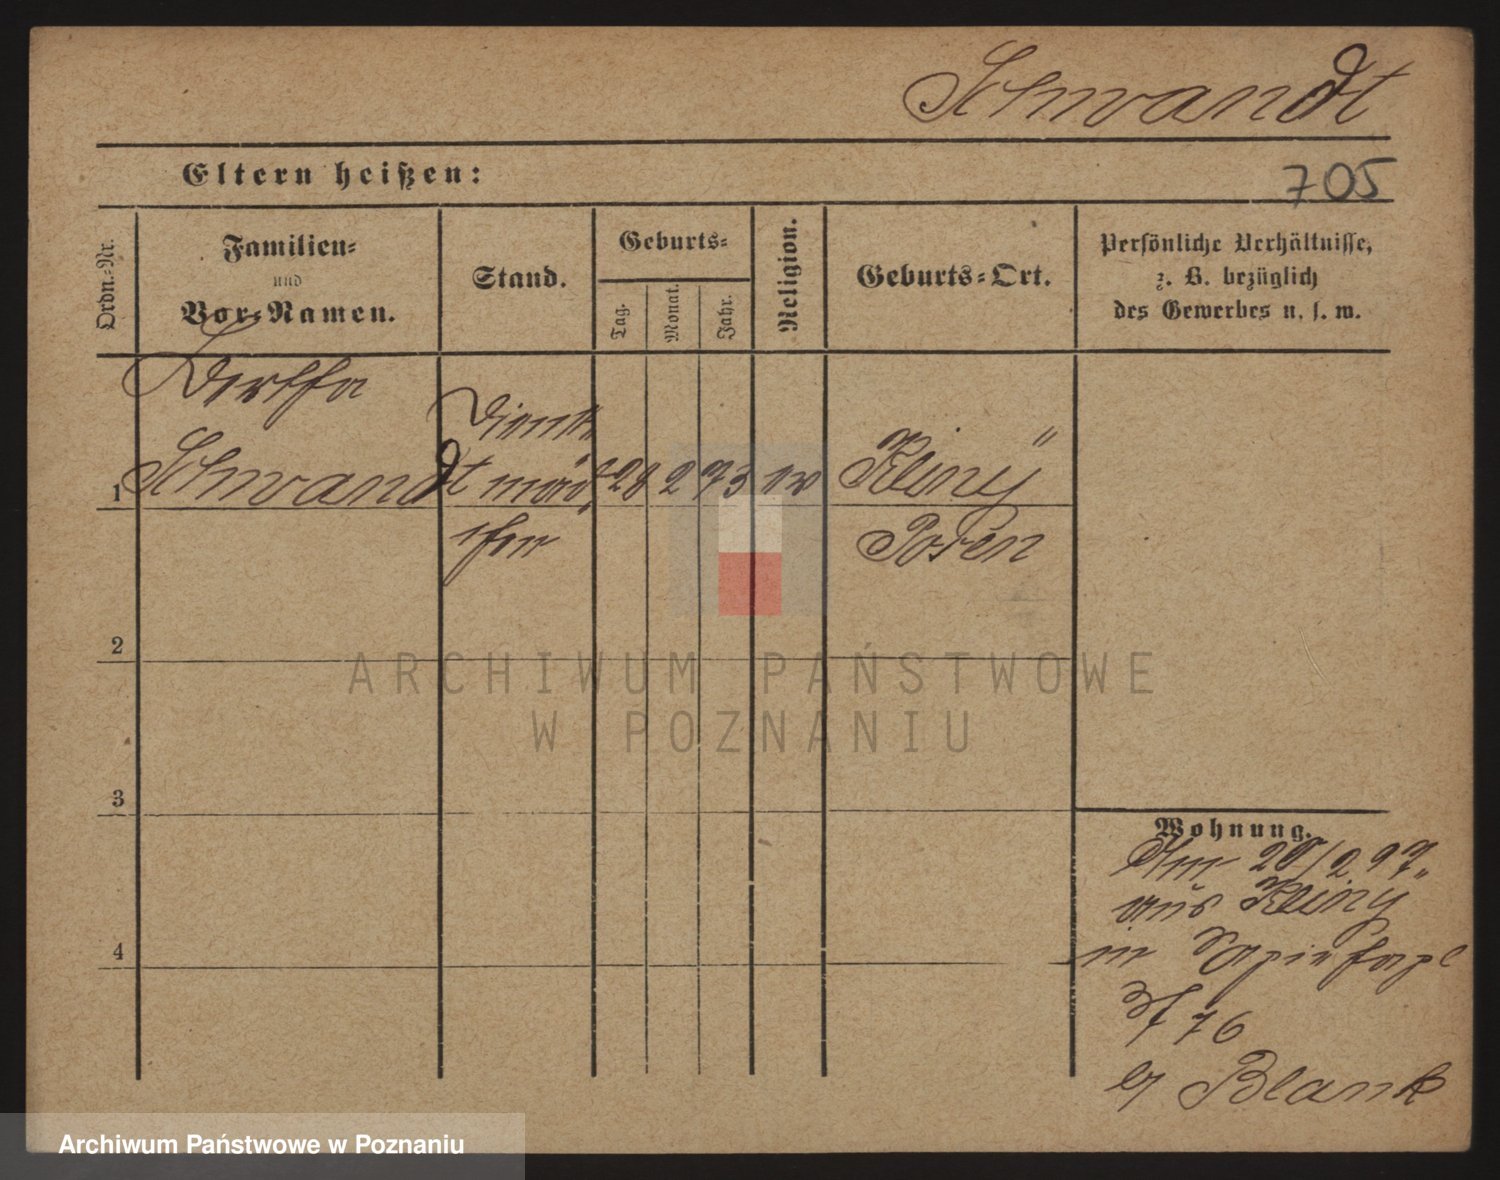 Schwandt
Eltern heißen:
705
Ordn.-Nr.
Familien-
und
Vor-Namen.
Stand.
Geburts-
Tag.
Monat.
Jahr.
Religion.
Geburts-Ort.
Persönliche Verhältnisse,
z. B. bezüglich
des Gewerbes u. s. w.
Bertha
Dienst
1 Schwandt mäd 28 2 73 ev
chen Posen
2
ARCHIWUM PAŃSTWOWE
W POZNANIU
3
Wohnung.
28/2 97
aus
4
in
76
by Blank
Archiwum Państwowe w Poznaniu